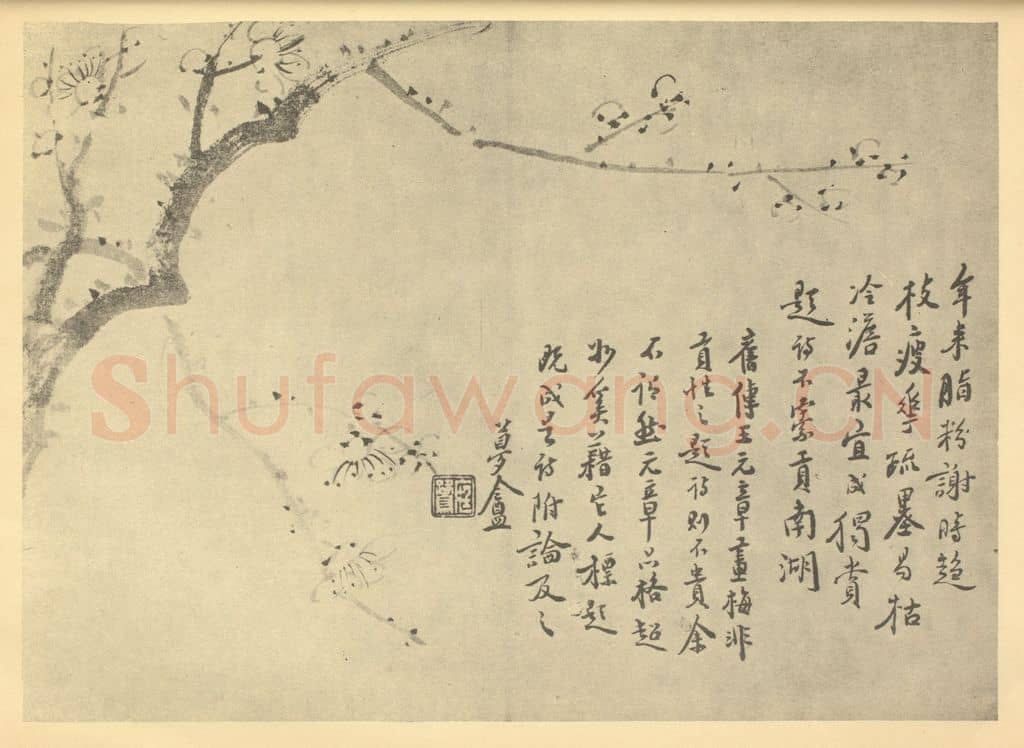 年来脂粉謝時趨
枝瘦華疏墨易枯
冷澹最宜成獨賞
題詩不索貢南湖
舊傳王元章畫梅非
貢性之題詩則不貴余
不謂然元章品格超
妙奚藉它人標題
既成是詩附論及之
夢盦
Shufawang.CN